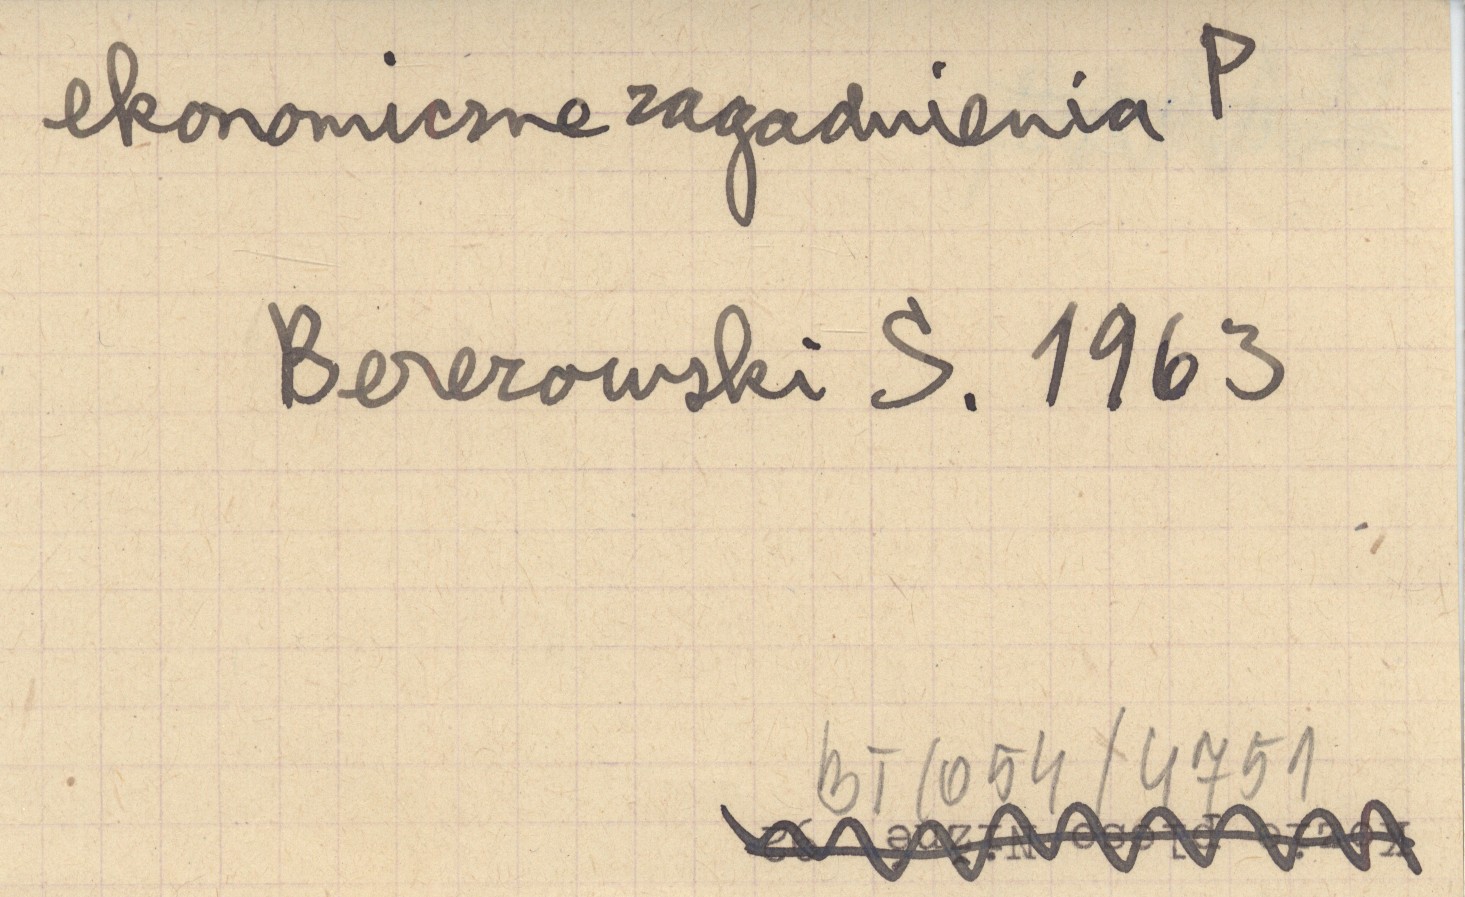 ekonomiczne zagadnienia P
Berezowski S. 1963
BT/054/4751